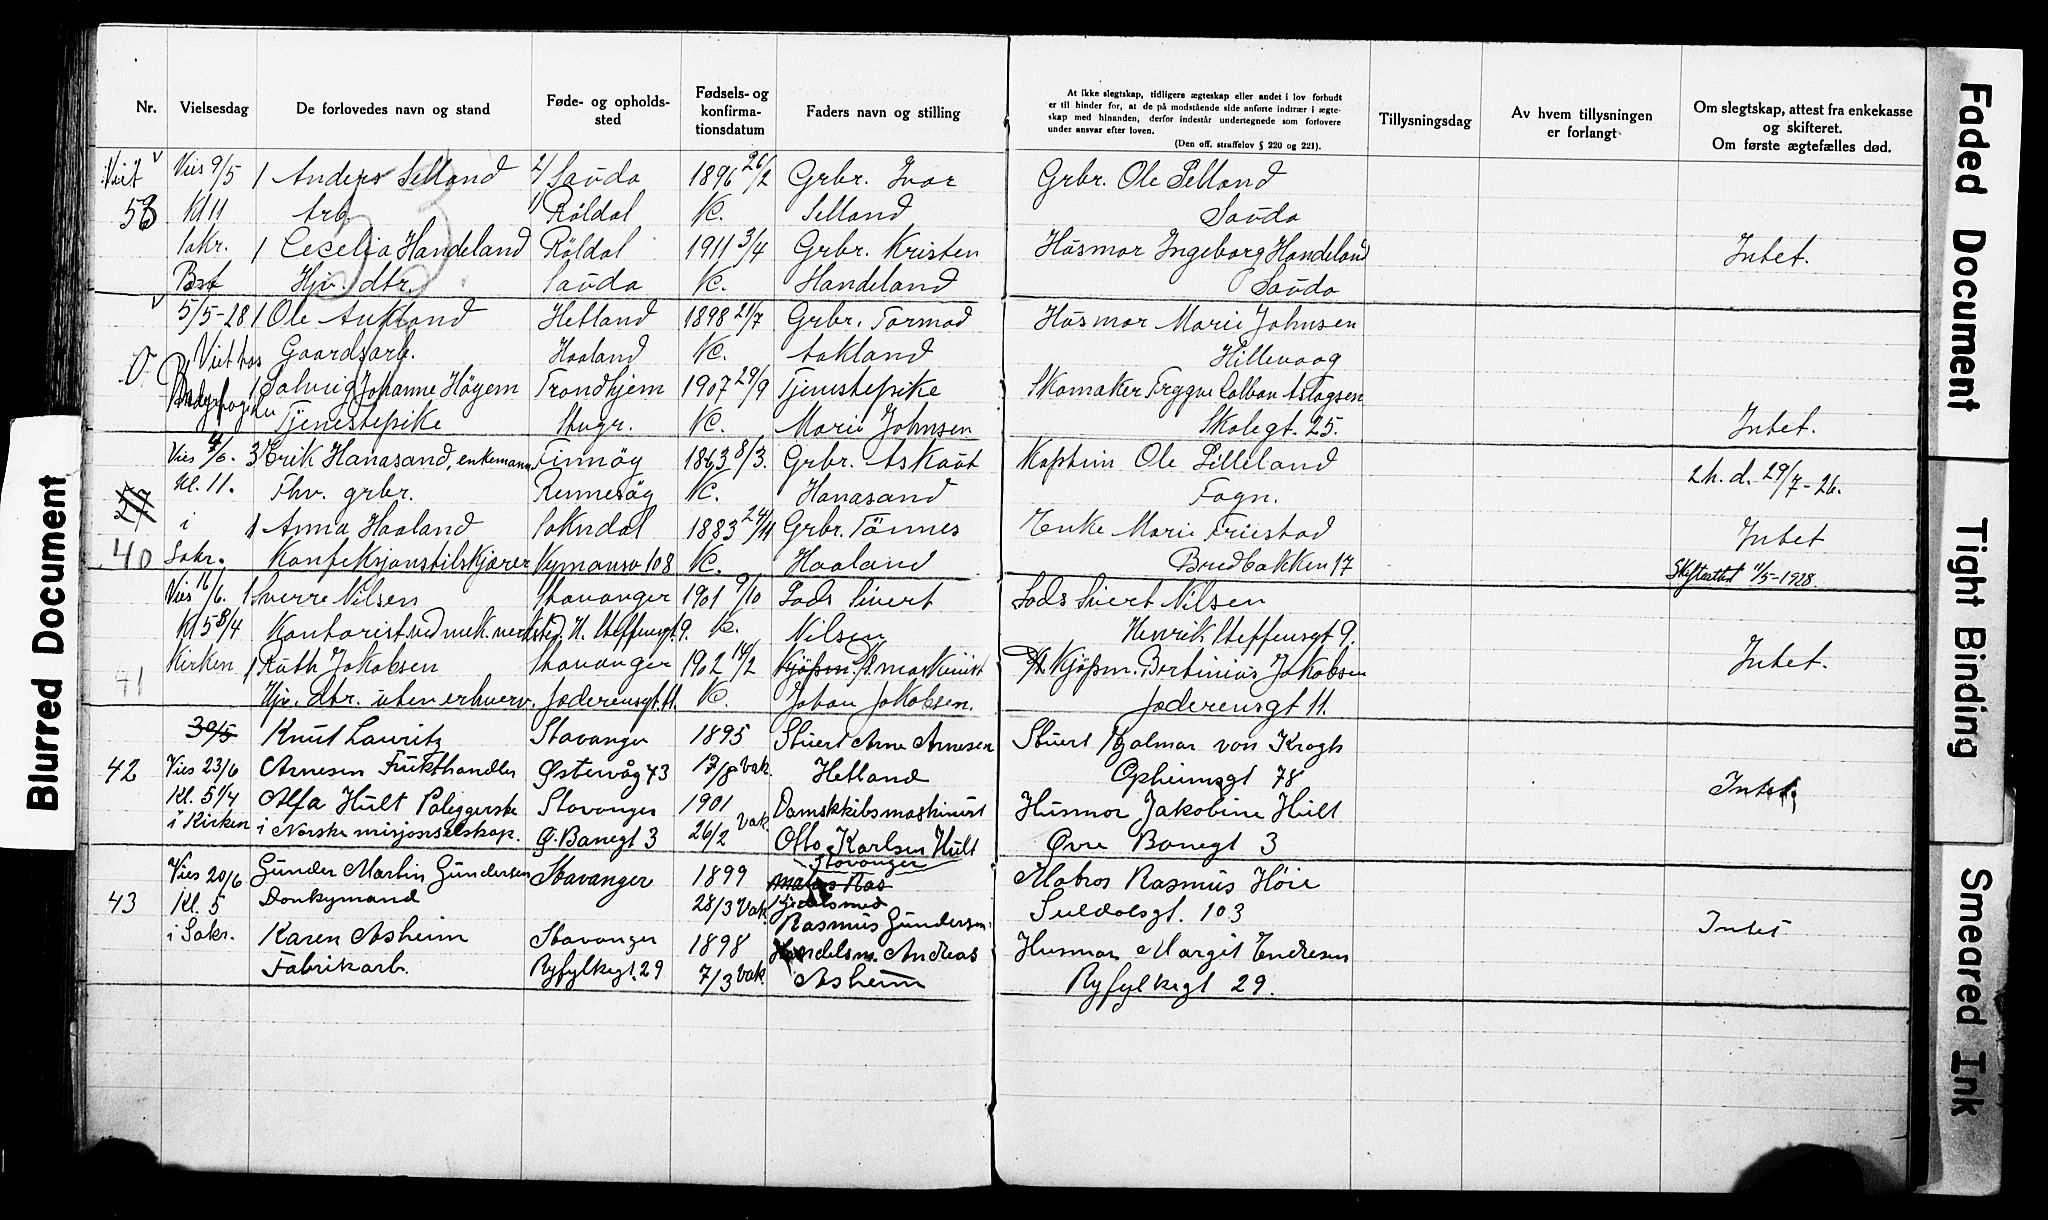 Blurred Document
Faded Document
Tight Binding
Smeared Ink
Nr.
Vielsesdag
De forlovedes navn og stand
Føde- og opholds-
sted
Fødsels- og
konfirma-
tionsdatum
Faders navn og stilling
At ikke slegtskap, tidligere ægteskap eller andet i lov forbudt
er til hinder for, at de på modstående side anførte indtrær i ægte-
skap med hinanden, derfor indestår undertegnede som forlovere
under ansvar efter loven.
(Den off. straffelov § 220 og 221).
Tillysningsdag
Av hvem tillysningen
er forlangt
Om slegtskap, attest fra enkekasse
og skifteret.
Om første ægtefælles død.
Viet Vies 9/5 1 Anders Selland 2) Sauda 1896 26/2 Grbr. Ivar Grbr. Ole Selland
Kl 11 Arb. 1) Röldal V. Selland Sauda
Sakr. 1 Cecelia Handeland Röldal 1911 3/4 Grbr. Kristen Husmor Ingeborg Handeland Intet.
Hjv. dtr. Sauda V. Handeland Sauda
5/5-28 1 Ole Aukland Hetland 1898 21/7 Grbr. Tormod Husmor Marie Johnsen
Viet hos Gaardsarb. Haaland V. Aakland Hillevaag
1 Solveig Johanne Höyem Trondhjem 1907 29/9 Tjenestepike Skomaker Trygve Aslagsen
Tjenestepike Stvgr. V. Marie Johnsen Skolegt. 25. Intet.
Vies 4/6. Erik Hanasand, enkemann Finnöy 1863 8/3. Grbr. Askaut Kaptein Ole Lilleland 2h. d. 29/7-26.
Kl. 11. Fhv. grbr. Rennesöy V. Hanasand Fogn.
i 1 Anna Haaland Sokndal 1883 24/11 Grbr. Tönnes Enke Marie Friestad Intet
40 Sakr. Konfeksjonstilskjærer Nymansv 108 V. Haaland Bredbakken 17 Skifteattest 11/5-1928.
Vies 16/6. 1 Sverre Nilsen Stavanger 1901 9/10 Lods Sivert Lods Sivert Nilsen
Kl 5 3/4 Kontorist ved mek. verksted. H. Steffensgt. 9. V. Nilsen Henrik Steffensgt 9.
Kirken 1 Ruth Jakobsen Stavanger 1902 14/2 Kjøpm. maskinist Kjöpm. Bertinius Jakobsen Intet.
41 Hjv. dtr. uten erhverv. Jæderensgt. 11. V. Johan Jakobsen. Jæderensgt 11.
30/5 Knut Lauritz Stavanger 1895 Stuert Arne Arnesen Stuert Hjalmar von Krogh
42 Vies 23/6 Arnesen Frukthandler Østervåg 43 vak. Hetland Opheimsgt 78
Kl. 5 1/4 Alfa Hult Paleggerske Stavanger 1901 Damskibsmaskinist Husmor Jakobine Hult Intet.
i Kirken i Norske misjonsselskap. Ø. Banegt 3 26/2 Vak. Otto Karlsen Hult Øvre Banegt 3
Stavanger
Vies 20/6 Gunder Martin Gundersen Stavanger 1899 Matros Ras Matros Rasmus Høie
43 Kl. 5 Donkymand 28/3 Vak. Suldalsgt. 103
Rasmus Gundersen
i Sakr. Karen Asheim Stavanger 1898 Handelsm. Andreas Husmor Margit Endresen Intet
Fabrikarb. Ryfylkegt. 29 7/3 Vak. Asheim Ryfylkegt 29.